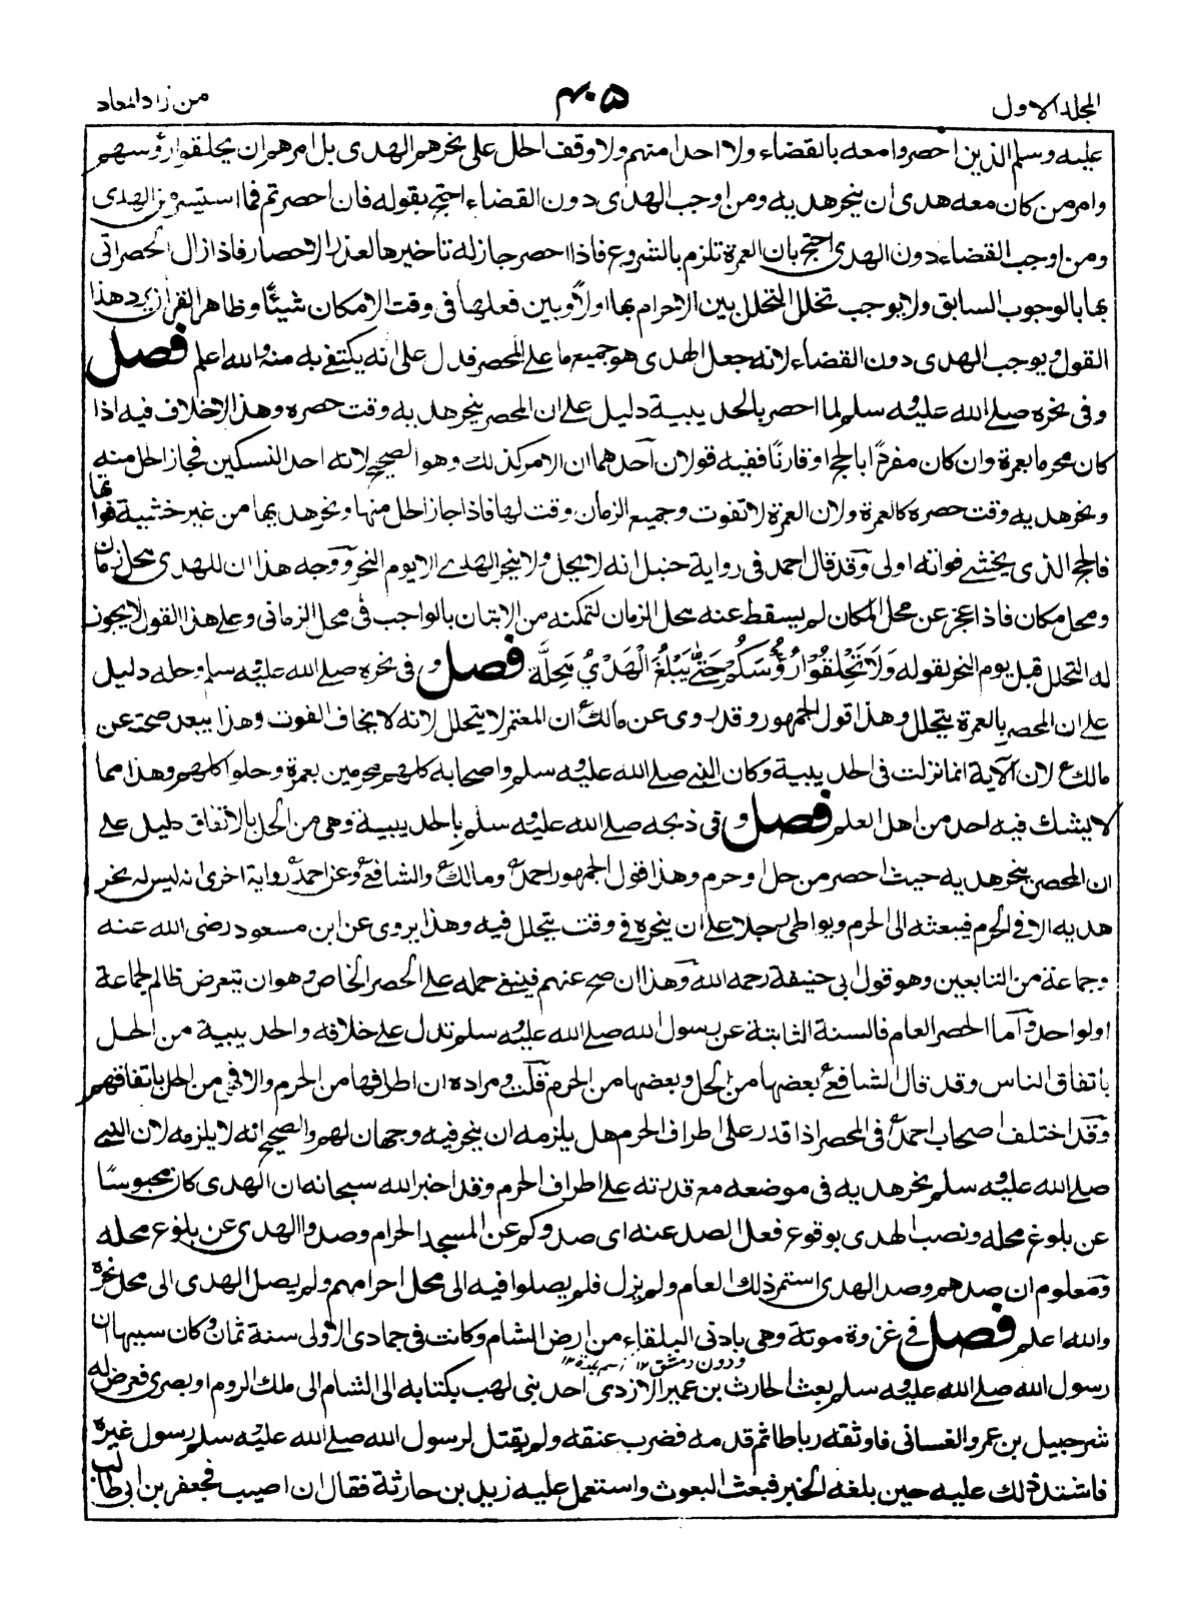 المجلد الاول
٤٠٥
من زاد المعاد
عليه وسلم الذين احصروا معه بالقضاء ولا احدا منهم ولا وقف الحل على نحرهم الهدى بل امرهم ان يحلقوا رؤسهم
وامر من كان معه هدى ان ينحر هديه ومن اوجب الهدى دون القضاء احتج بقوله فان احصرتم فما استيسر من الهدى
ومن اوجب القضاء دون الهدى احتج بان العمرة تلزم بالشروع فاذا احصر جاز له تاخيرها لعذر الاحصار فاذا زال الحصر اتى
بها بالوجوب السابق ولا يوجب تخلل التحلل بين الاحرام بها اولاً وبين فعلها فى وقت الامكان شيئًا وظاهر القران يرد هذا
القول ويوجب الهدى دون القضاء لانه جعل الهدى هو جميع ما على المحصر فدل على انه يكتفى به منه والله اعلم فصل
وفى نحره صلى الله عليه وسلم لما احصر بالحديبية دليل على ان المحصر ينحر هديه وقت حصره وهذا لا خلاف فيه اذا
كان محرما بعمرة وان كان مفردًا بالحج او قارنًا ففيه قولان احدهما ان الامر كذلك وهو الصحيح لانه احد النسكين فجاز الحل منه
ونحر هديه وقت حصره كالعمرة ولان العمرة لا تفوت وجميع الزمان وقت لها فاذا جاز الحل منها ونحر هديها من غير خشية فواتها
فالحج الذى يخشى فواته اولى وقد قال احمد فى رواية حنبل انه لا يحل ولا ينحر الهدى الا يوم النحر ووجه هذا ان للهدى محل زمان
ومحل مكان فاذا عجز عن محل المكان لم يسقط عنه محل الزمان لتمكنه من الاتيان بالواجب فى محل الزمانى وعلى هذا القول لا يجوز
له التحلل قبل يوم النحر لقوله وَلَا تَحْلِقُوْا رُؤُسَكُمْ حَتّٰى يَبْلُغَ الْهَدْيُ مَحِلَّهٗ فصل وفى نحره صلى الله عليه وسلم وحله دليل
على ان المحصر بالعمرة يتحلل وهذا قول الجمهور وقد روى عن مالك ان المعتمر لا يتحلل لانه لا يخاف الفوت وهذا يبعد صحته عن
مالك لان الآية انما نزلت فى الحديبية وكان النبى صلى الله عليه وسلم واصحابه كلهم محرمين بعمرة وحلوا كلهم وهذا مما
لا يشك فيه احد من اهل العلم فصل وفى ذبحه صلى الله عليه وسلم بالحديبية وهى من الحل بالاتفاق دليل على
ان المحصر ينحر هديه حيث احصر من حل او حرم وهذا قول الجمهور احمد ومالك والشافعى وعن احمد رواية اخرى انه ليس له نحر
هديه الا فى الحرم فيبعثه الى الحرم ويواطئ رجلا على ان ينحره فى وقت يتحلل فيه وهذا يروى عن ابن مسعود رضى الله عنه
وجماعة من التابعين وهو قول ابى حنيفة رحمه الله وهذا ان صح عنهم فينبغى حمله على الحصر الخاص وهو ان يتعرض ظالم لجماعة
او لواحد واما الحصر العام فالسنة الثابتة عن رسول الله صلى الله عليه وسلم تدل على خلافه والحديبية من الحل
باتفاق الناس وقد قال الشافعى بعضها من الحل وبعضها من الحرم قلت ومراده ان اطرافها من الحرم والا فهى من الحل باتفاقهم
وقد اختلف اصحاب احمد فى المحصر اذا قدر على اطراف الحرم هل يلزمه ان ينحر فيه وجهان لهم والصحيح انه لا يلزمه لان النبى
صلى الله عليه وسلم نحر هديه فى موضعه مع قدرته على اطراف الحرم وقد اخبر الله سبحانه ان الهدى كان محبوسًا
عن بلوغ محله ونصب الهدى بوقوع فعل الصد عنه اى صدوكم عن المسجد الحرام وصدوا الهدى عن بلوغ محله
ومعلوم ان صدهم وصد الهدى استمر ذلك العام ولم يزل فلم يصلوا فيه الى محل احرامهم ولم يصل الهدى الى محل نحره
والله اعلم فصل فى غزوة موتة وهى بادنى البلقاء من ارض الشام وكانت فى جمادى الاولى سنة ثمان وكان سببها ان
ودون دمشق ١٢
رسول الله صلى الله عليه وسلم بعث الحارث بن عمير الازدى احد بنى لهب بكتابه الى الشام الى ملك الروم او بصرى فعرض له
شرحبيل بن عمرو الغسانى فاوثقه رباطا ثم قدمه فضرب عنقه ولم يقتل لرسول الله صلى الله عليه وسلم رسول غيره
فاشتد ذلك عليه حين بلغه الخبر فبعث البعوث واستعمل عليه زيد بن حارثة فقال ان اصيب فجعفر بن ابى طالب